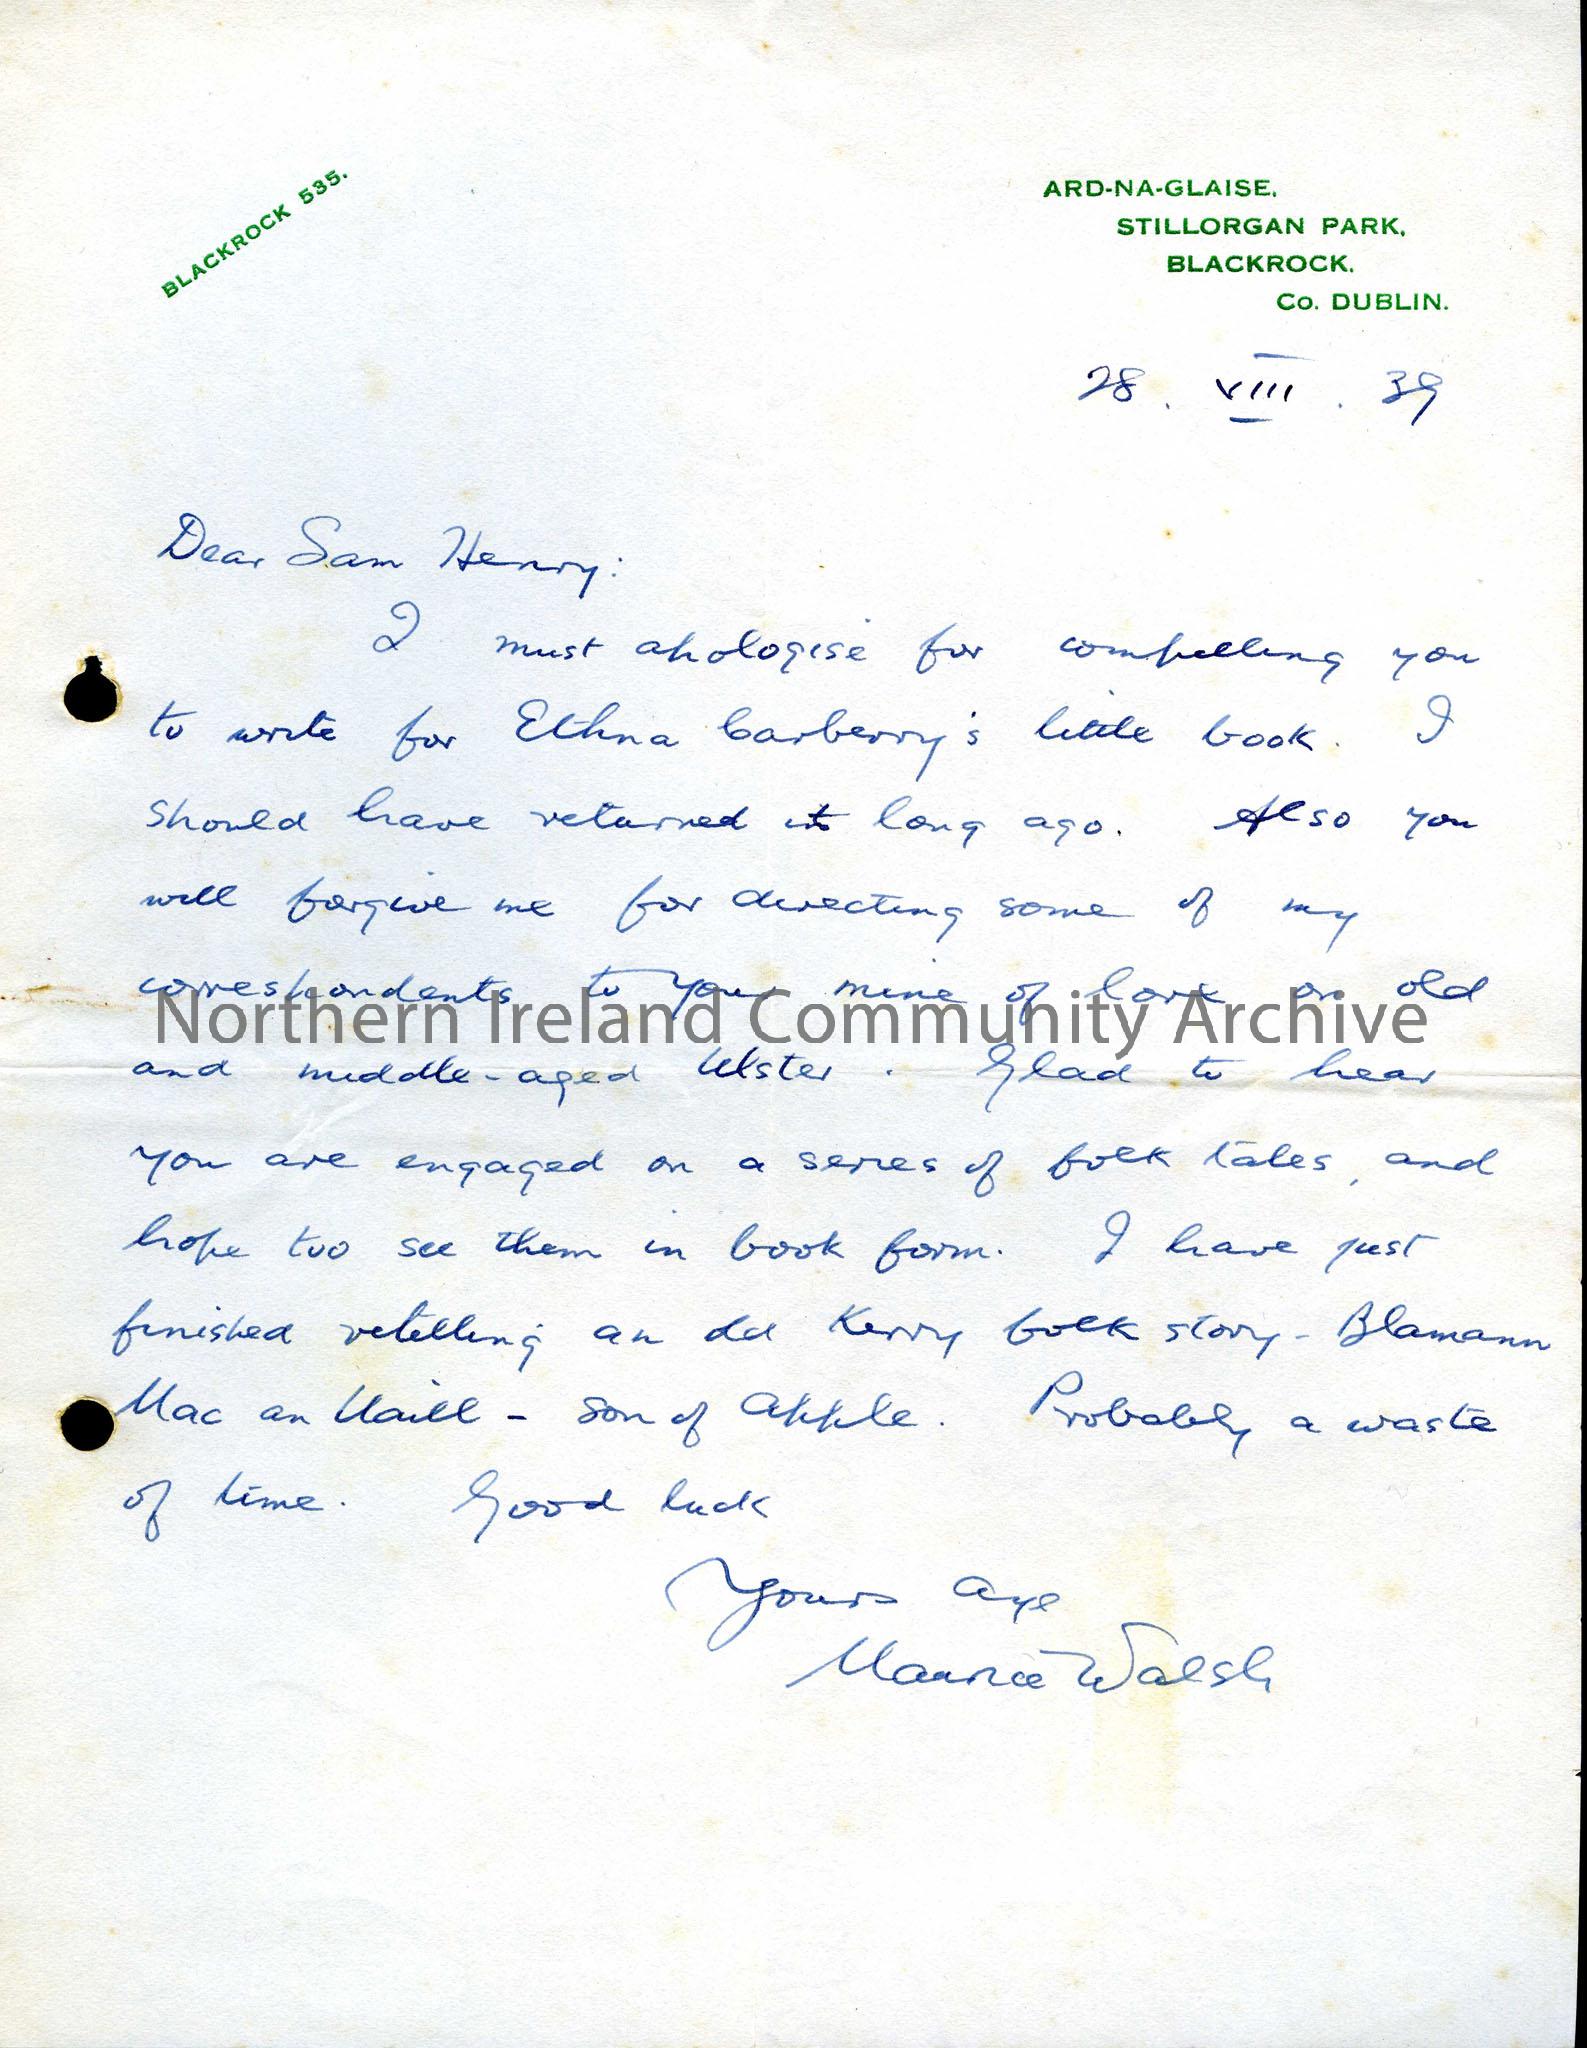 BLACKROCK 535.
ARD-NA-GLAISE,
STILLORGAN PARK,
BLACKROCK,
Co. DUBLIN.
28 . VIII . 39
Dear Sam Henry:
I must apologise for compelling you
to write for Ethna Carberry's little book. I
should have returned it long ago. Also you
will forgive me for directing some of my
correspondents to your mine of lore on old
Northern Ireland Community Archive
and middle-aged Ulster. Glad to hear
you are engaged on a series of folk tales, and
hope too see them in book form. I have just
finished retelling an old Kerry folk story - Blamann
Mac an Uaill - son of Apple. Probably a waste
of time. Good luck
Yours aye
Maurice Walsh